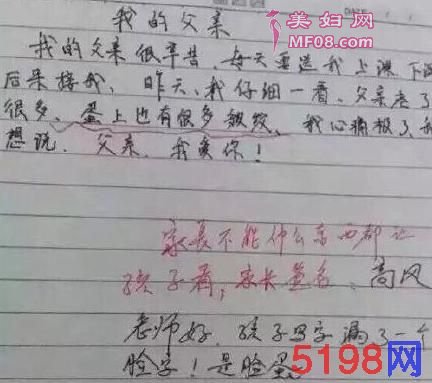 我的父亲
美妇网
MF08.com
我的父亲很辛苦,每天要送我上课,下课
后来接我,昨天,我仔细一看,父亲老了
很多,蛋上也有很多皱纹,我心痛极了,我
想说,父亲,我爱你!
家长不能什么东西都让
孩子看,家长签名:高风
老师好,孩子写字漏了一个
脸字!是脸蛋
5198网